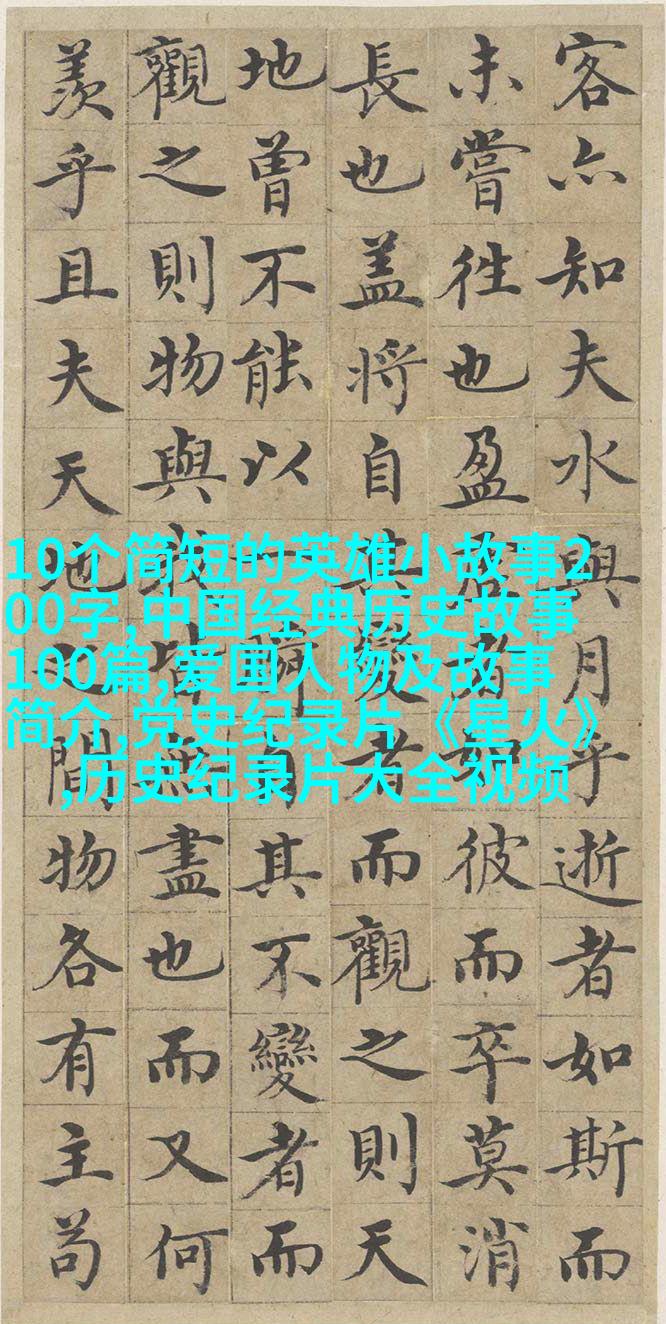 客亦知夫水與月乎逝者如斯而
未嘗往也盈虛者如彼而卒莫消
長也盖将自其變者而觀之則天
地曾不能以一瞬自其不變者而
觀之則物與我皆無盡也而又何
羨乎且夫天地之間物各有主苟
10个简短的英雄小故事2
00字,中国经典历史故事
100篇,爱国人物及故事
简介,党史纪录片《星火》
,历史纪录片大全视频